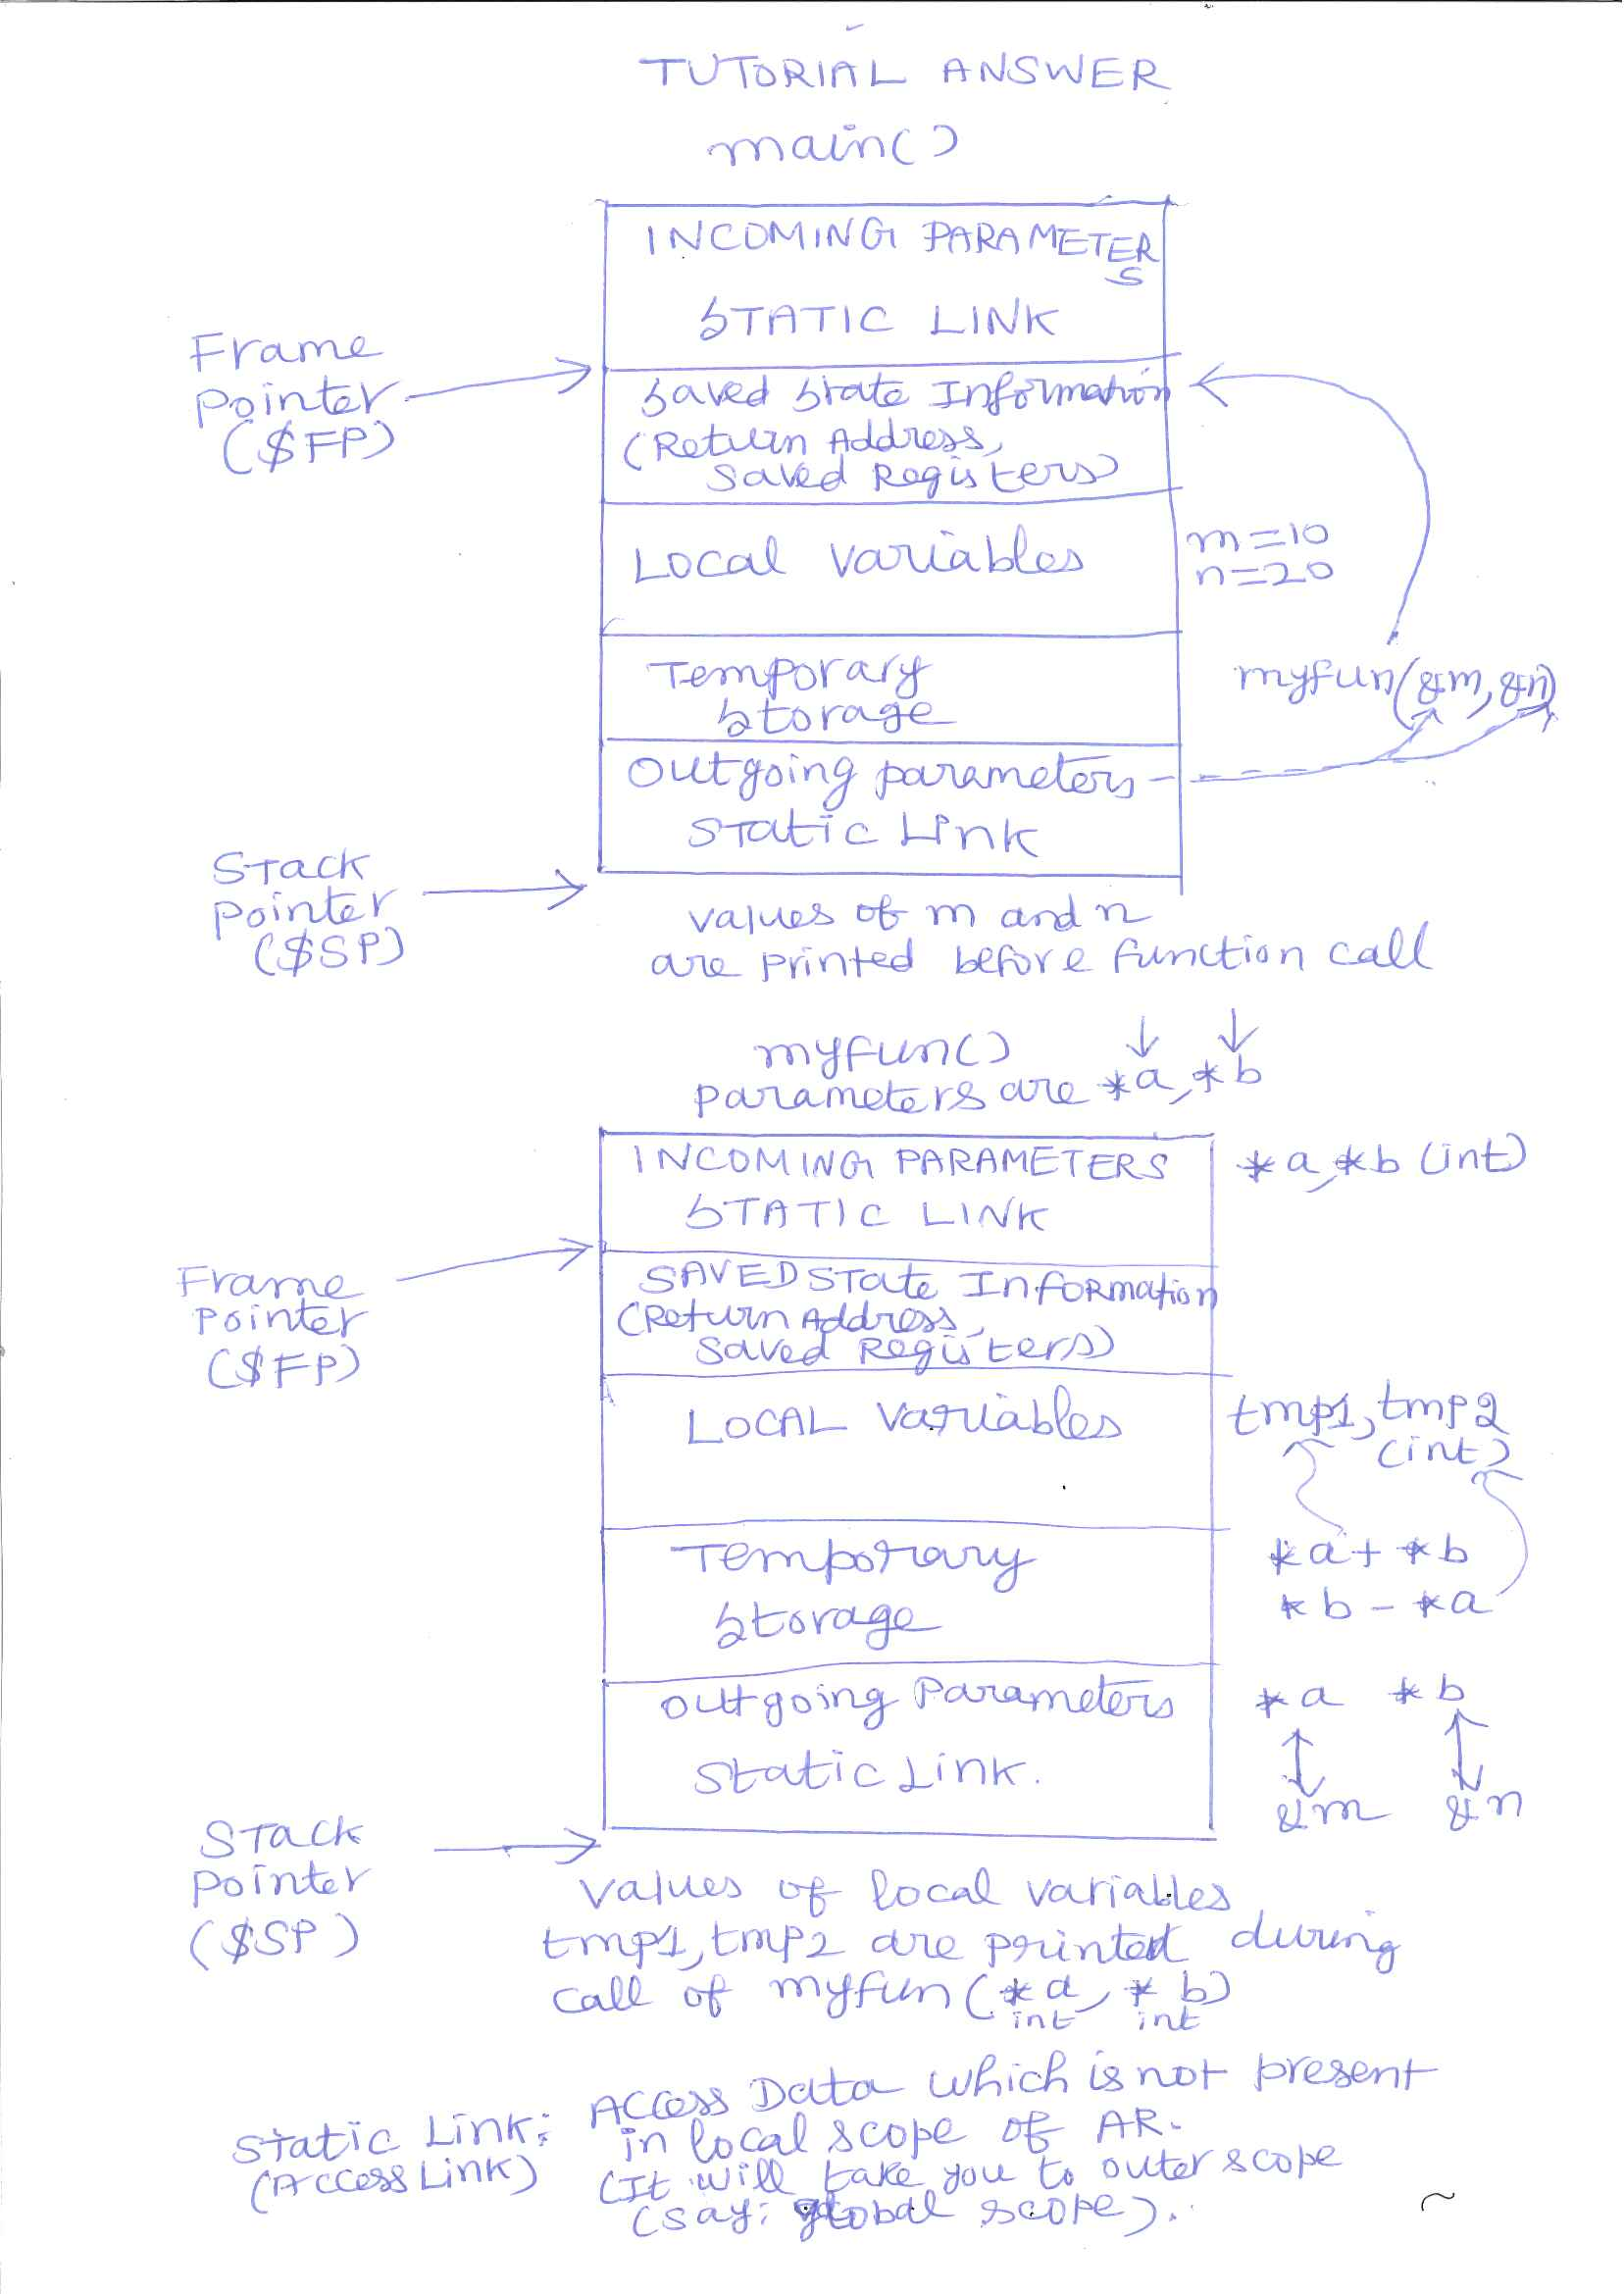 TUTORIAL ANSWER
main()
INCOMING PARAMETER
S
STATIC LINK
Frame
Pointer
($FP)
Saved State Information
(Return Address,
Saved Registers)
Local Variables
m=10
n=20
Temporary
Storage
myfun(&m,&n)
Outgoing parameters
Static Link
Stack
Pointer
($SP)
values of m and n
are printed before function call
myfun()
parameters are *a,*b
INCOMING PARAMETERS
*a,*b (int)
STATIC LINK
Frame
Pointer
($FP)
SAVED State Information
(Return Address,
Saved Registers)
LOCAL Variables
tmp1,tmp2
(int)
Temporary
Storage
*a+*b
*b-*a
Outgoing Parameters
*a *b
Static Link.
&m &n
Stack
Pointer
($SP)
Values of local variables
tmp1,tmp2 are printed during
call of myfun(*a, *b)
int int
Static Link: Access Data which is not present
in local scope of AR.
(Access Link) (It will take you to outer scope
(say: global scope).